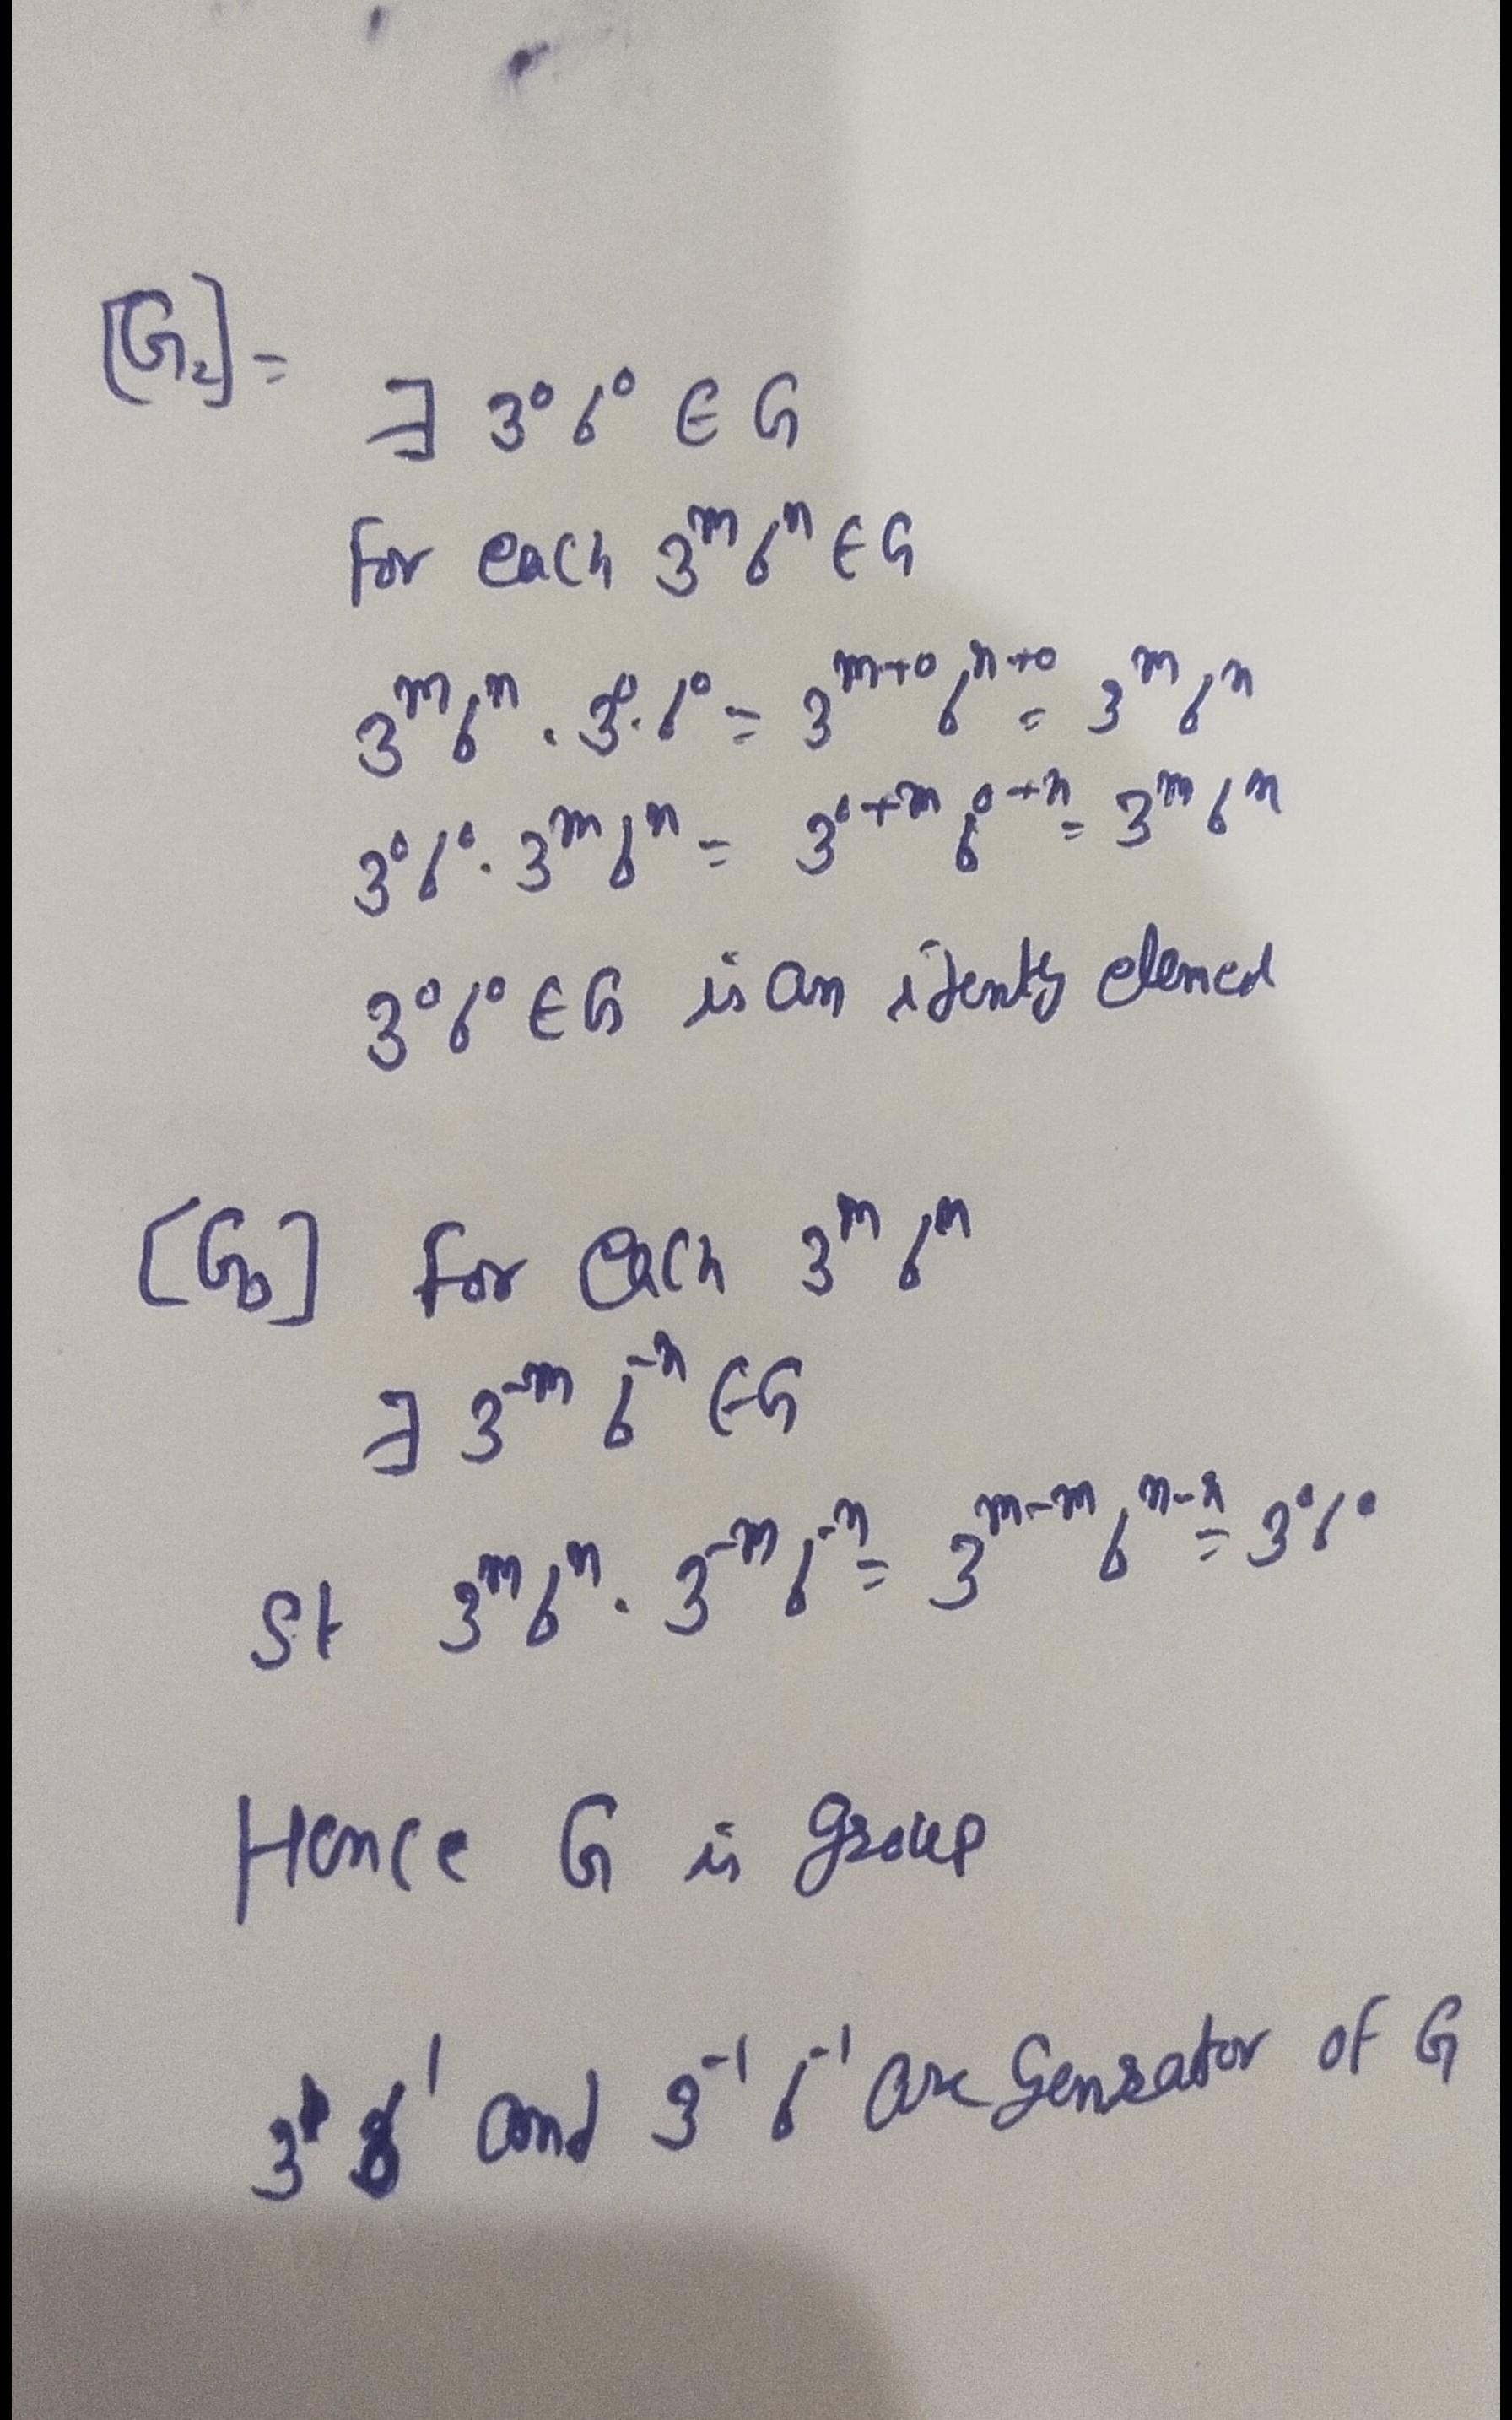 [G₂] =
∃ 3⁰6⁰ ∈ G
for each 3ᵐ6ⁿ ∈ G
3ᵐ6ⁿ . 3⁰.6⁰ = 3ᵐ⁺⁰6ⁿ⁺⁰ = 3ᵐ6ⁿ
3⁰6⁰ . 3ᵐ6ⁿ = 3⁰⁺ᵐ6⁰⁺ⁿ = 3ᵐ6ⁿ
3⁰6⁰ ∈ G is an
[G₃] for each 3ᵐ6ⁿ
∃ 3⁻ᵐ6⁻ⁿ ∈ G
st 3ᵐ6ⁿ . 3⁻ᵐ6⁻ⁿ = 3ᵐ⁻ᵐ6ⁿ⁻ⁿ = 3⁰6⁰
Hence G is group
3¹6¹ and 3⁻¹6⁻¹ are Genrator of G